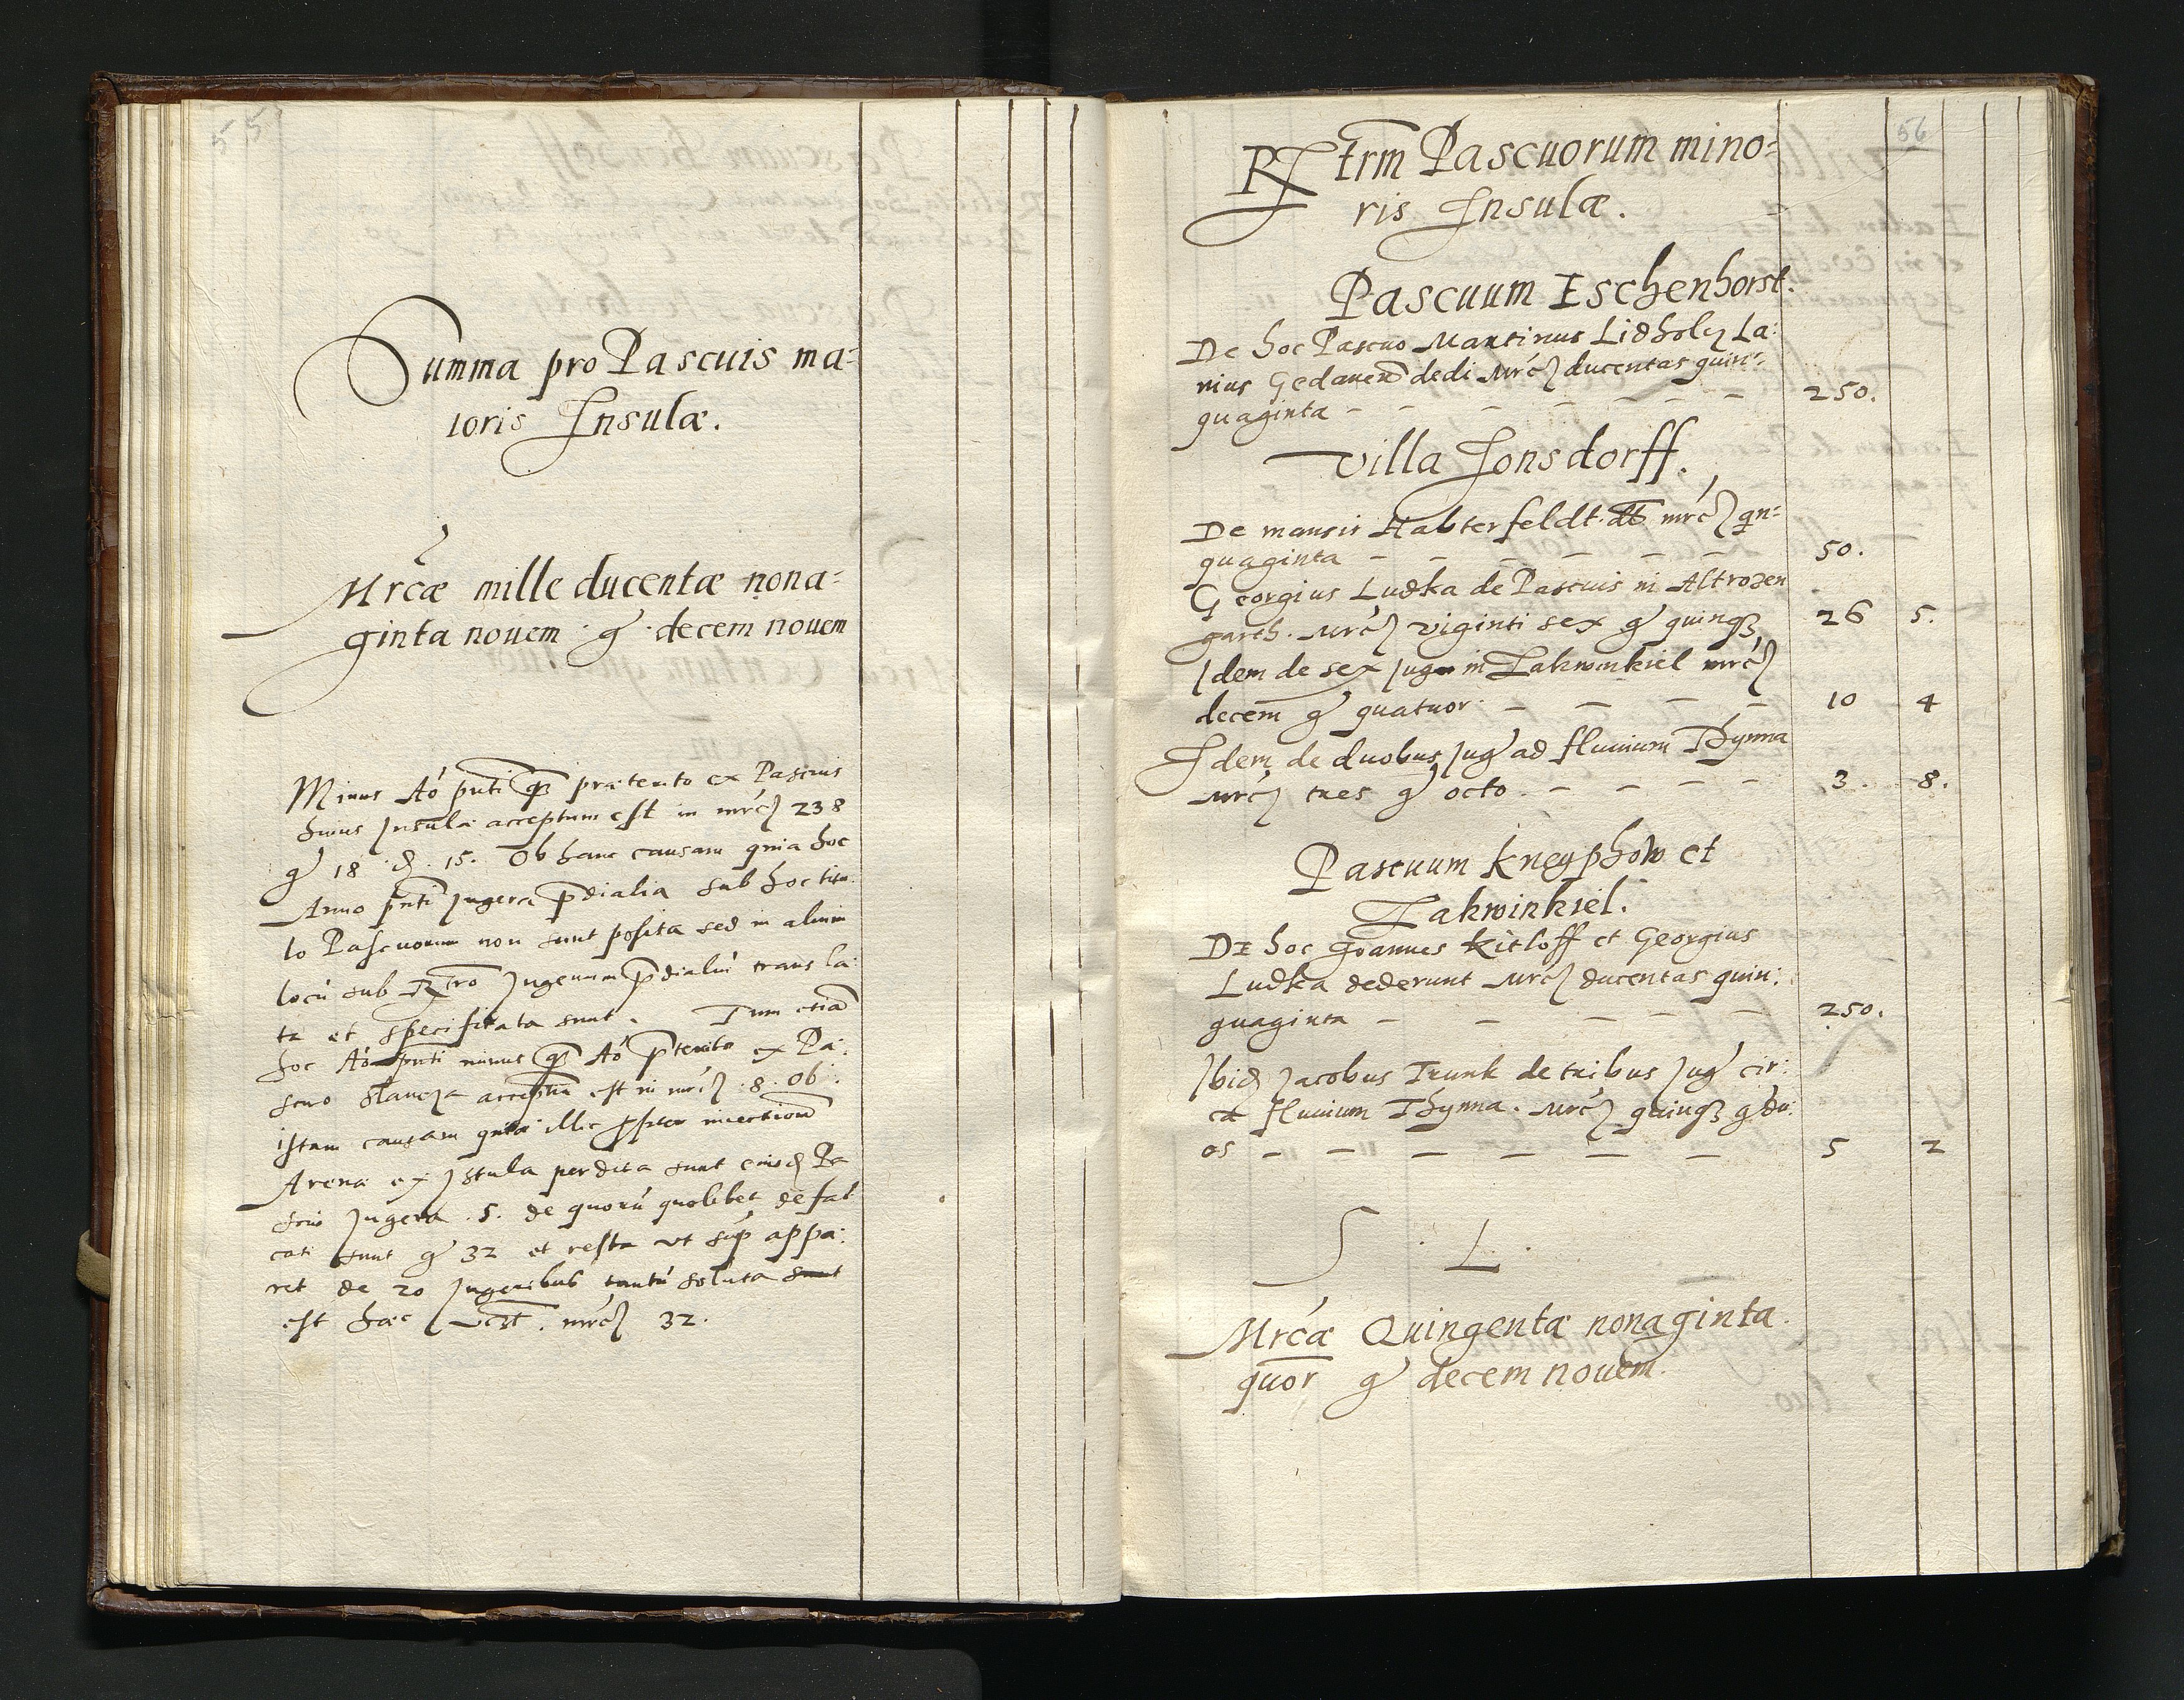 55
Summa pro Pascuis ma=
ioris Insulæ.
Mrcæ mille ducentæ nona=
ginta nouem · g · decem nouem
Minus Ao pnti q3 præterito ex Pascuis
huius Insulæ acceptum est in mrc) 238
g 18 · d · 15 · Ob hanc causam quia hoc
Anno pnti jugera pdialia sub hoc titu
lo Pascuorum non sunt posita sed in alium
locū sub Rtro Jugerum pdialiū transla:
ta et specificata sunt. Tum etiā
hoc Ao pnti minus q3 Ao pterito ex Pa:
scuo Slancza acceptū est in mrc) · 8 · Ob
istam causam quia illic ppter iniectionē
Arenæ ex Istula perdita sunt eiusd Pa
scui Jugera · 5 · de quorū quolibet defal
cati sunt g 32 et resta vt sup appa:
ret de 20 Jugeribus tantū soluta sunt
est hæc mrc) 32.
56
Rtrm Pascuorum mino=
ris Insulæ.
Pascuum Eschenhorst.
De hoc Pascuo Martinus Lidholcz La:
nius Gedanen dedi Mrc) ducentas quin=
quaginta - - - - - - - 250.
Villa Jonsdorff.
De mansis Halterfeldt · dt mrc) qn=
quaginta - - - - - - 50.
Georgius Ludka de Pascuis in Altrozen
garth. Mrc) viginti sex g quinq3 26 5.
Idem de sex Jug in Lakwinkiel mrc)
decem g quatuor - - - - 10 4
Idem de duobus Jug ad fluuium Thynna
Mrc) tres g octo - - - - 3. 8.
Pascuum Kneyphow et
Lakwinkiel.
De hoc Joannes Kitloff et Georgius
Ludka dederunt Mrc) ducentas quin:
quaginta - - - - - 250.
Ibid Jacobus Trunk de tribus Jug cir:
ca fluuium Thynna. Mrc) quinq3 g du:
os - - - - - - - 5 2
S · L ·
Mrcæ Quingentæ nonaginta
quor g decem nouem